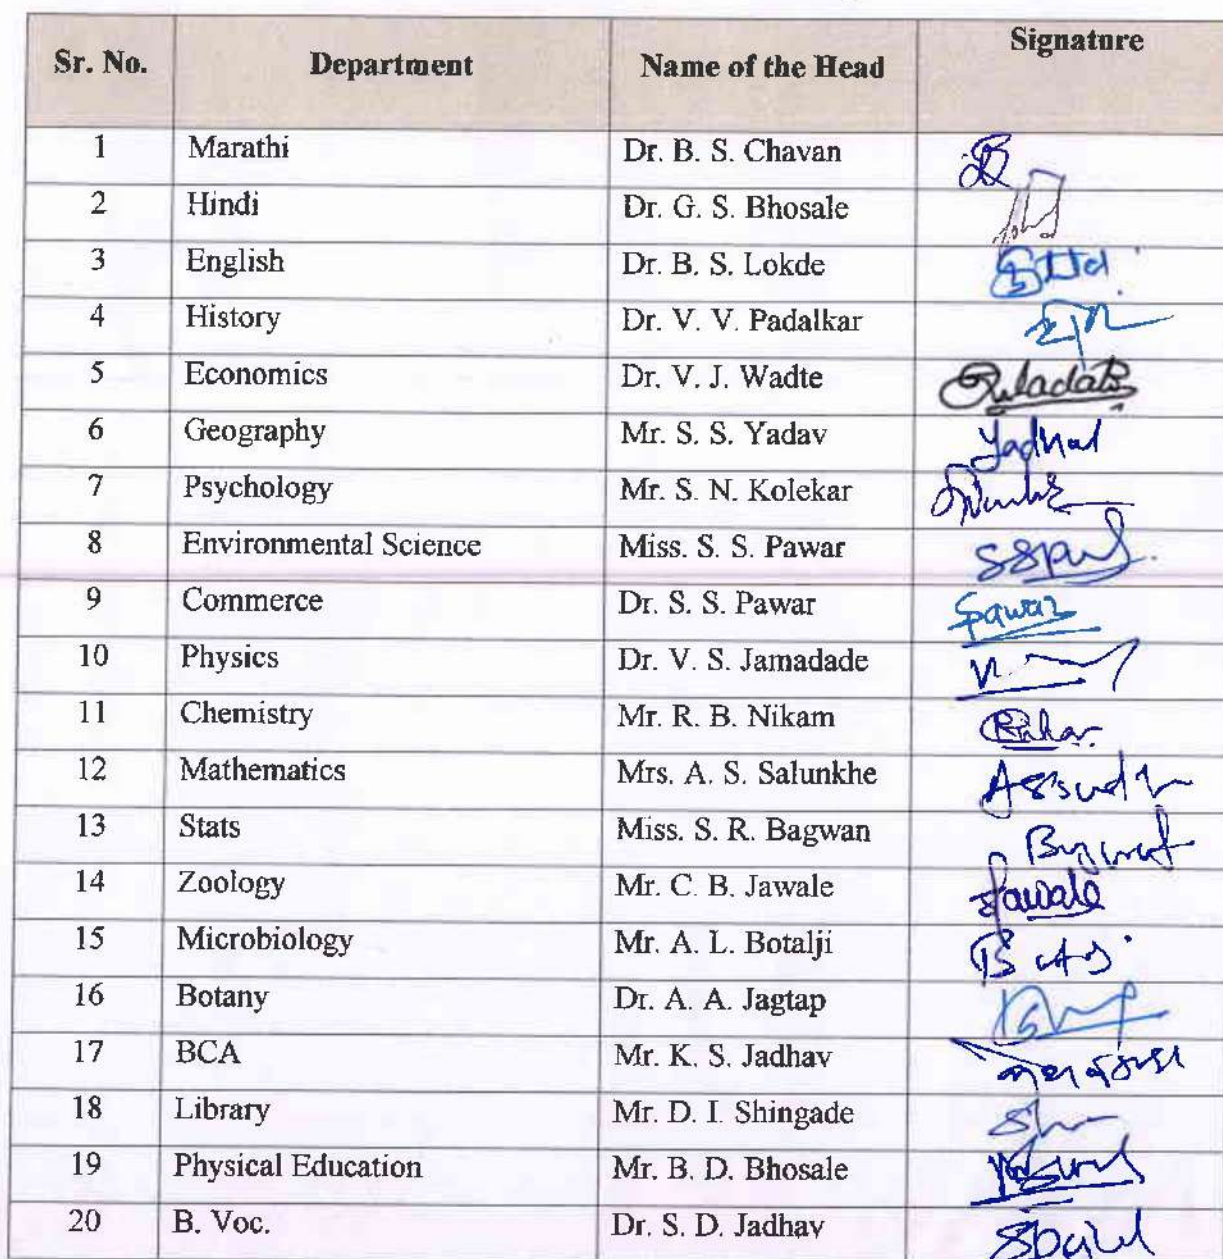 Sr. No. Department Name of the Head Signature
1 Marathi Dr. B. S. Chavan
2 Hindi Dr. G. S. Bhosale
3 English Dr. B. S. Lokde
4 History Dr. V. V. Padalkar
5 Economics Dr. V. J. Wadte
6 Geography Mr. S. S. Yadav
7 Psychology Mr. S. N. Kolekar
8 Environmental Science Miss. S. S. Pawar
9 Commerce Dr. S. S. Pawar Spawar
10 Physics Dr. V. S. Jamadade
11 Chemistry Mr. R. B. Nikam
12 Mathematics Mrs. A. S. Salunkhe
13 Stats Miss. S. R. Bagwan
14 Zoology Mr. C. B. Jawale Jawale
15 Microbiology Mr. A. L. Botalji
16 Botany Dr. A. A. Jagtap
17 BCA Mr. K. S. Jadhav
18 Library Mr. D. I. Shingade
19 Physical Education Mr. B. D. Bhosale
20 B. Voc. Dr. S. D. Jadhav